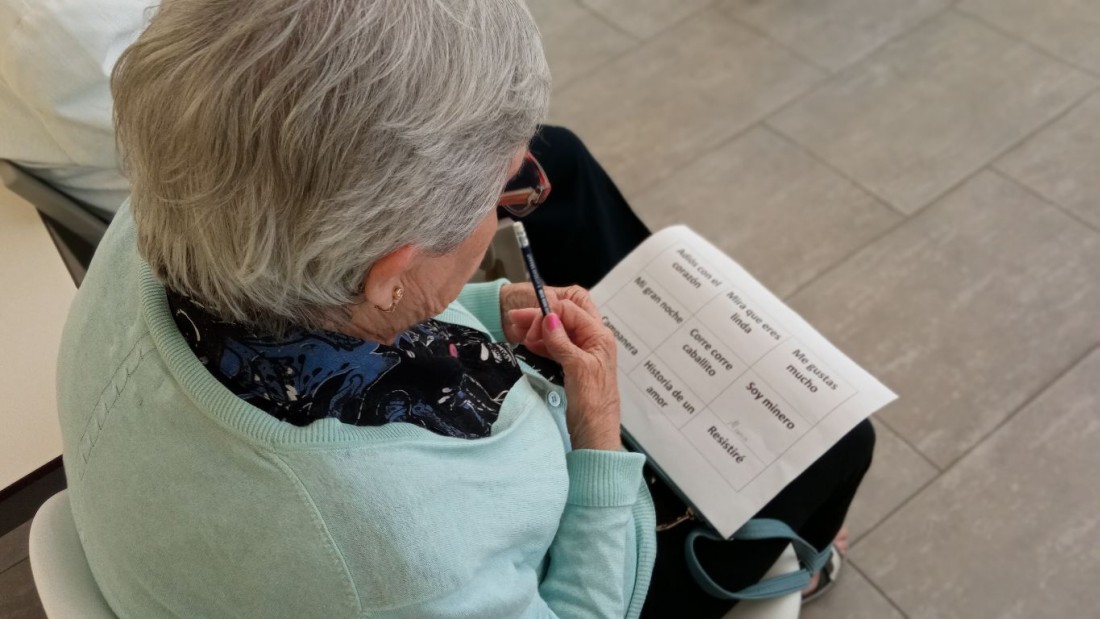 Adiós con el
corazón
Mira que eres
linda
Me gustas
mucho
Mi gran noche
Corre corre
caballito
Soy minero
Campanera
Historia de un
amor
Resistiré